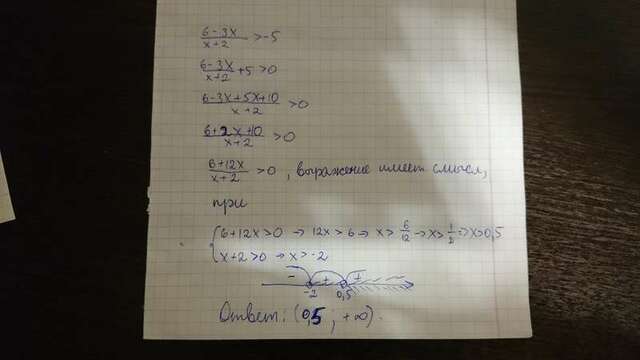 (6-3x)/(x+2) > -5
(6-3x)/(x+2) + 5 > 0
(6-3x+5x+10)/(x+2) > 0
(6+2x+10)/(x+2) > 0
(6+12x)/(x+2) > 0, выражение имеет смысл,
при
{ 6+12x>0 → 12x>6 → x> 6/12 → x> 1/2 => x>0,5
x+2>0 → x>-2
- + +
-2 0,5
Ответ: (0,5 ; +∞).